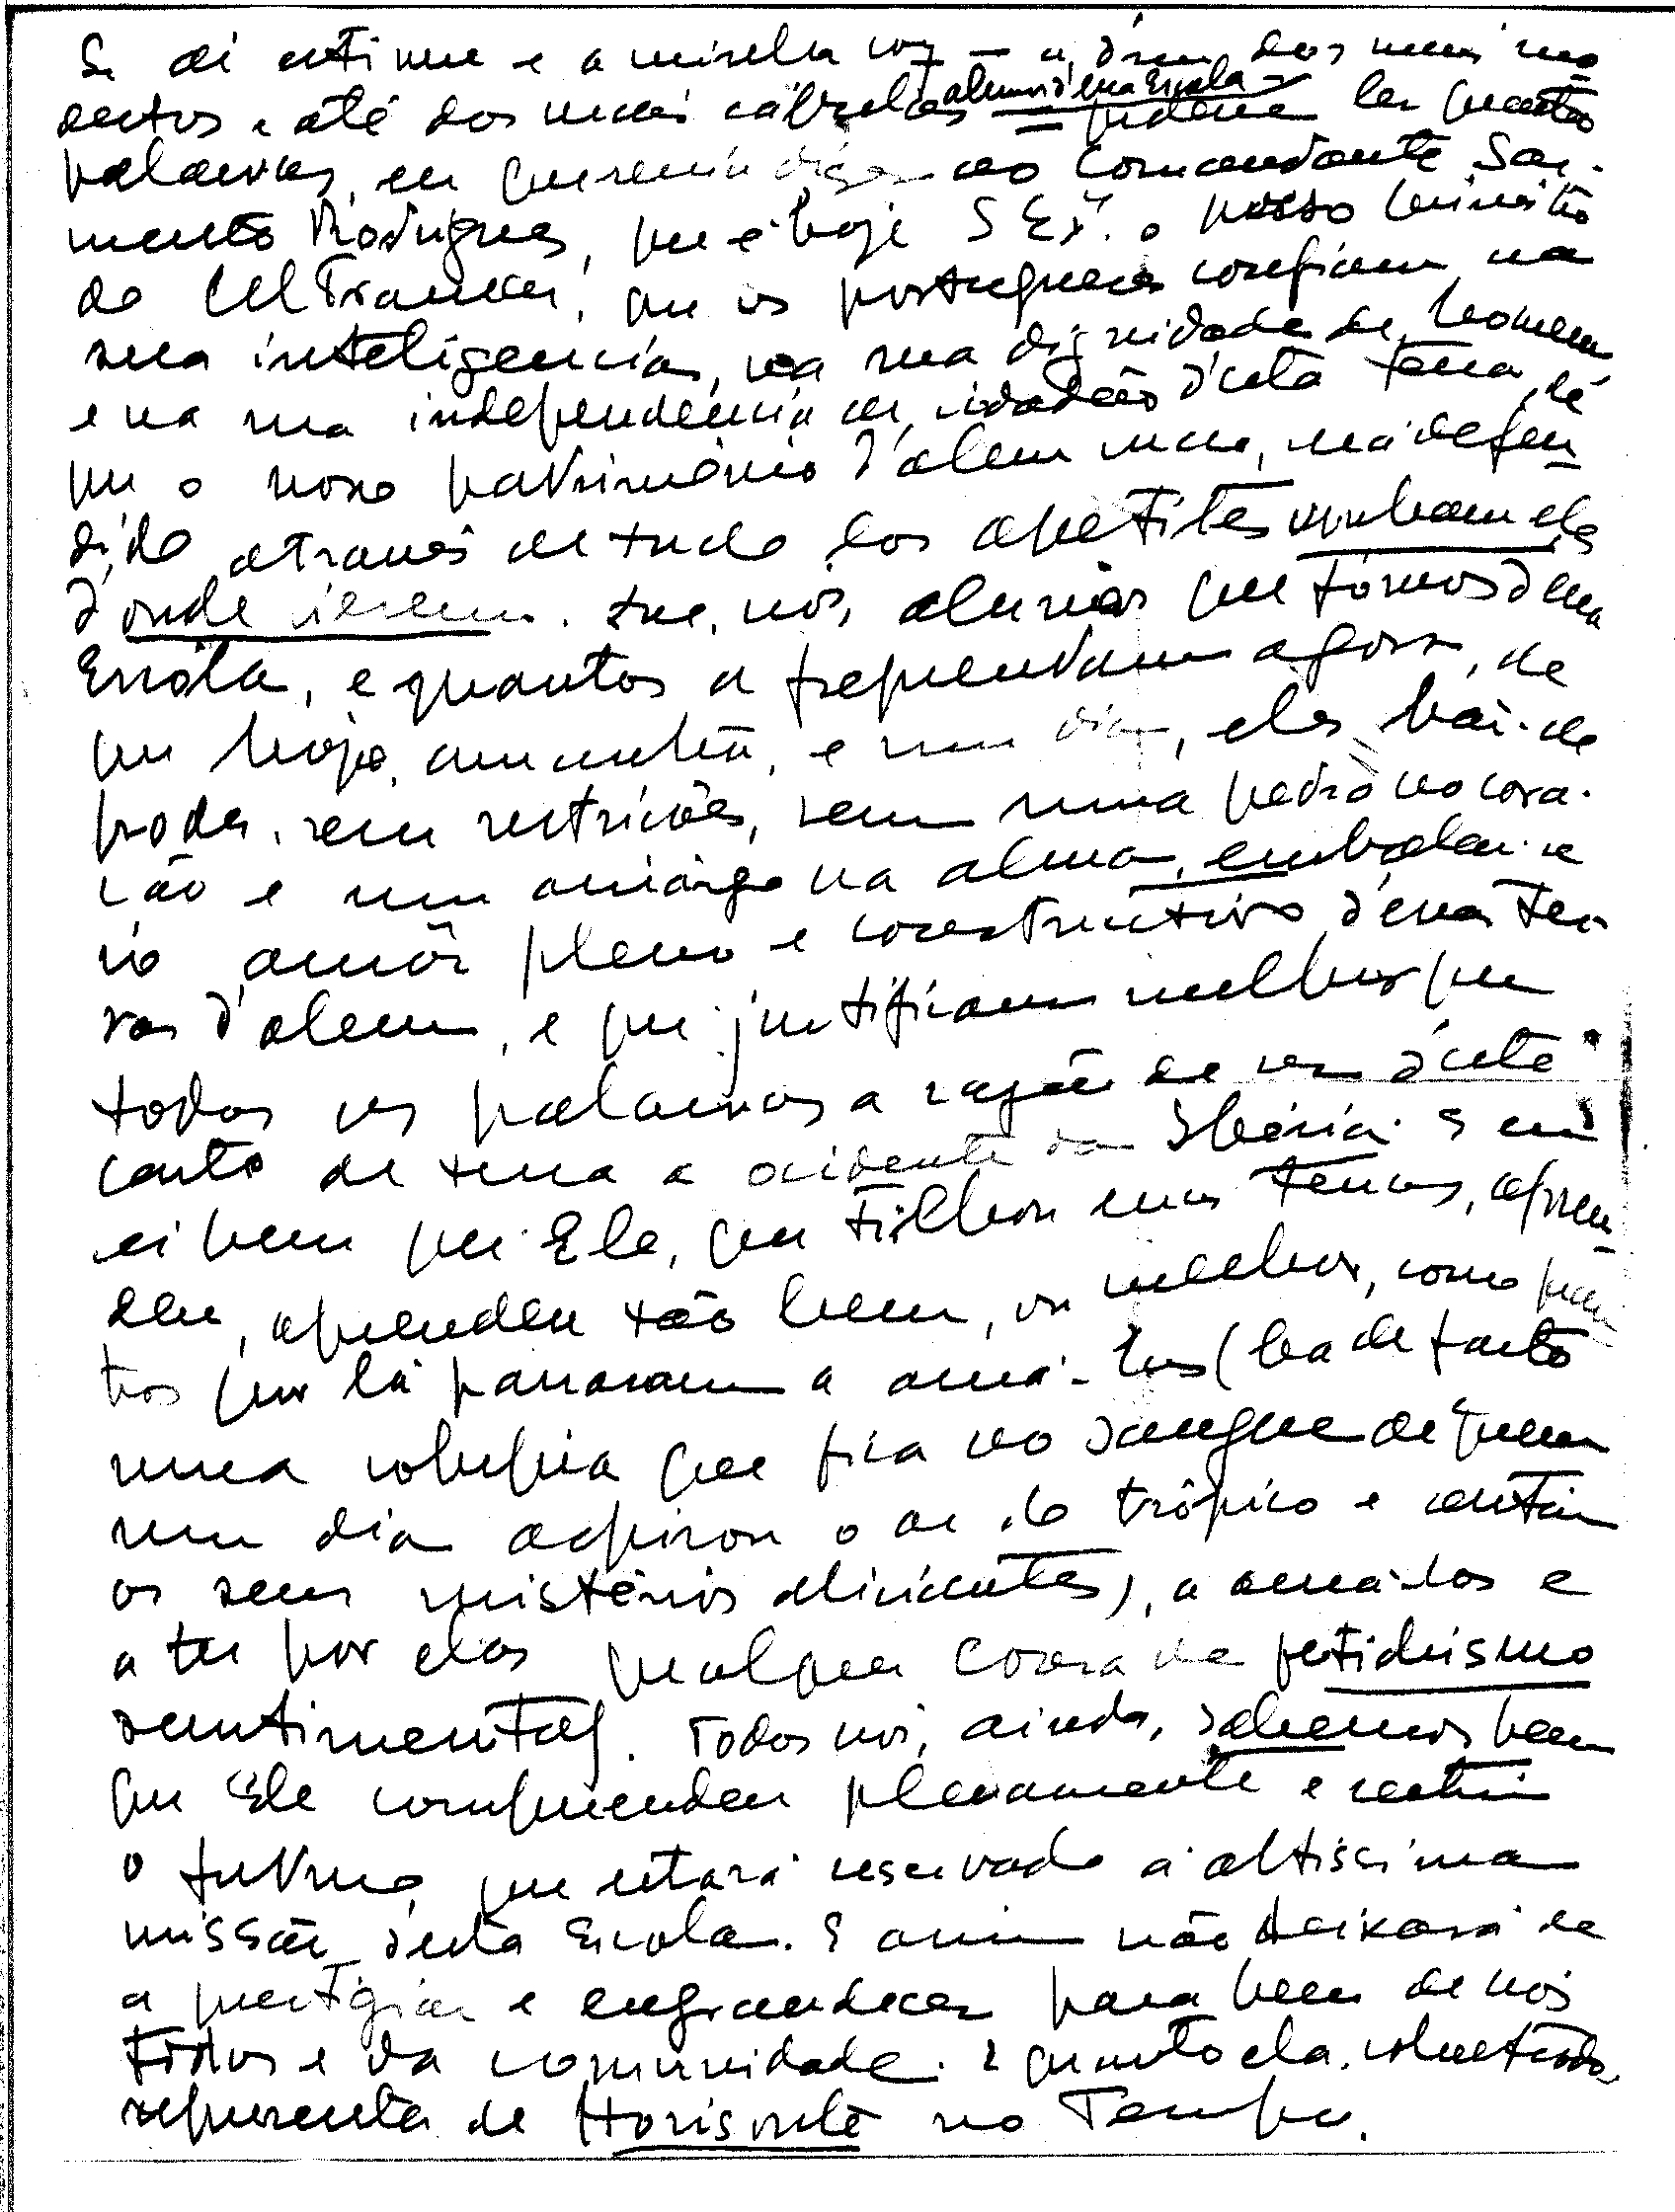 Se ai estivesse e a minha voz — a dum dos mais mo
destos e até dos mais cábulas alunos d'essa Escola — pudesse ler quatro
palavras, eu quereria dizer ao Comandante Sar-
mento Rodrigues, que é hoje S Exª. o nosso Ministro
do Ultramar, que os portugueses confiam na
sua inteligencia, na sua dignidade de homem
e na sua independência de cidadão d'esta terra, de
que o nosso património d'alem mar, será defen
dido através de tudo dos apetites venham eles
d'onde vierem. Que, nós, alunos que fômos d'essa
Escóla, e quantos a frequentam agora, de
que hoje, amanhã, e um dia, eles hão-de
poder, sem restricões, sem uma pedra no cora-
ção e um amargo na alma, embalar-se
no amôr pleno e construtivo d'essas ter
ras d'alem, e que justificam melhor que
todas as palavras a razão de ser d'este
canto de terra a ocidente da Ibéria. E eu
sei bem que Ele, que trilhou essas terras, apren
deu, aprendeu tão bem, ou melhor, como quan
tos por lá passaram a amá-las (ha de facto
uma volupia que fica no sangue de quem
um dia aspirou o ar do trópico e sentiu
os seus mistérios aliciantes), a amá-las e
a ter por elas qualquer coisa de fetichismo
sentimental. Todos nós, ainda, sabemos bem
que Ele compreendeu plenamente e sentiu
o futuro que estará reservado á altissima
missão desta Escola. E assim não deixará de
a prestigiar e engrandecer para bem de nós
todos e da comunidade. E quanto ela, sobretudo,
representa de Horisonte no Tempo.